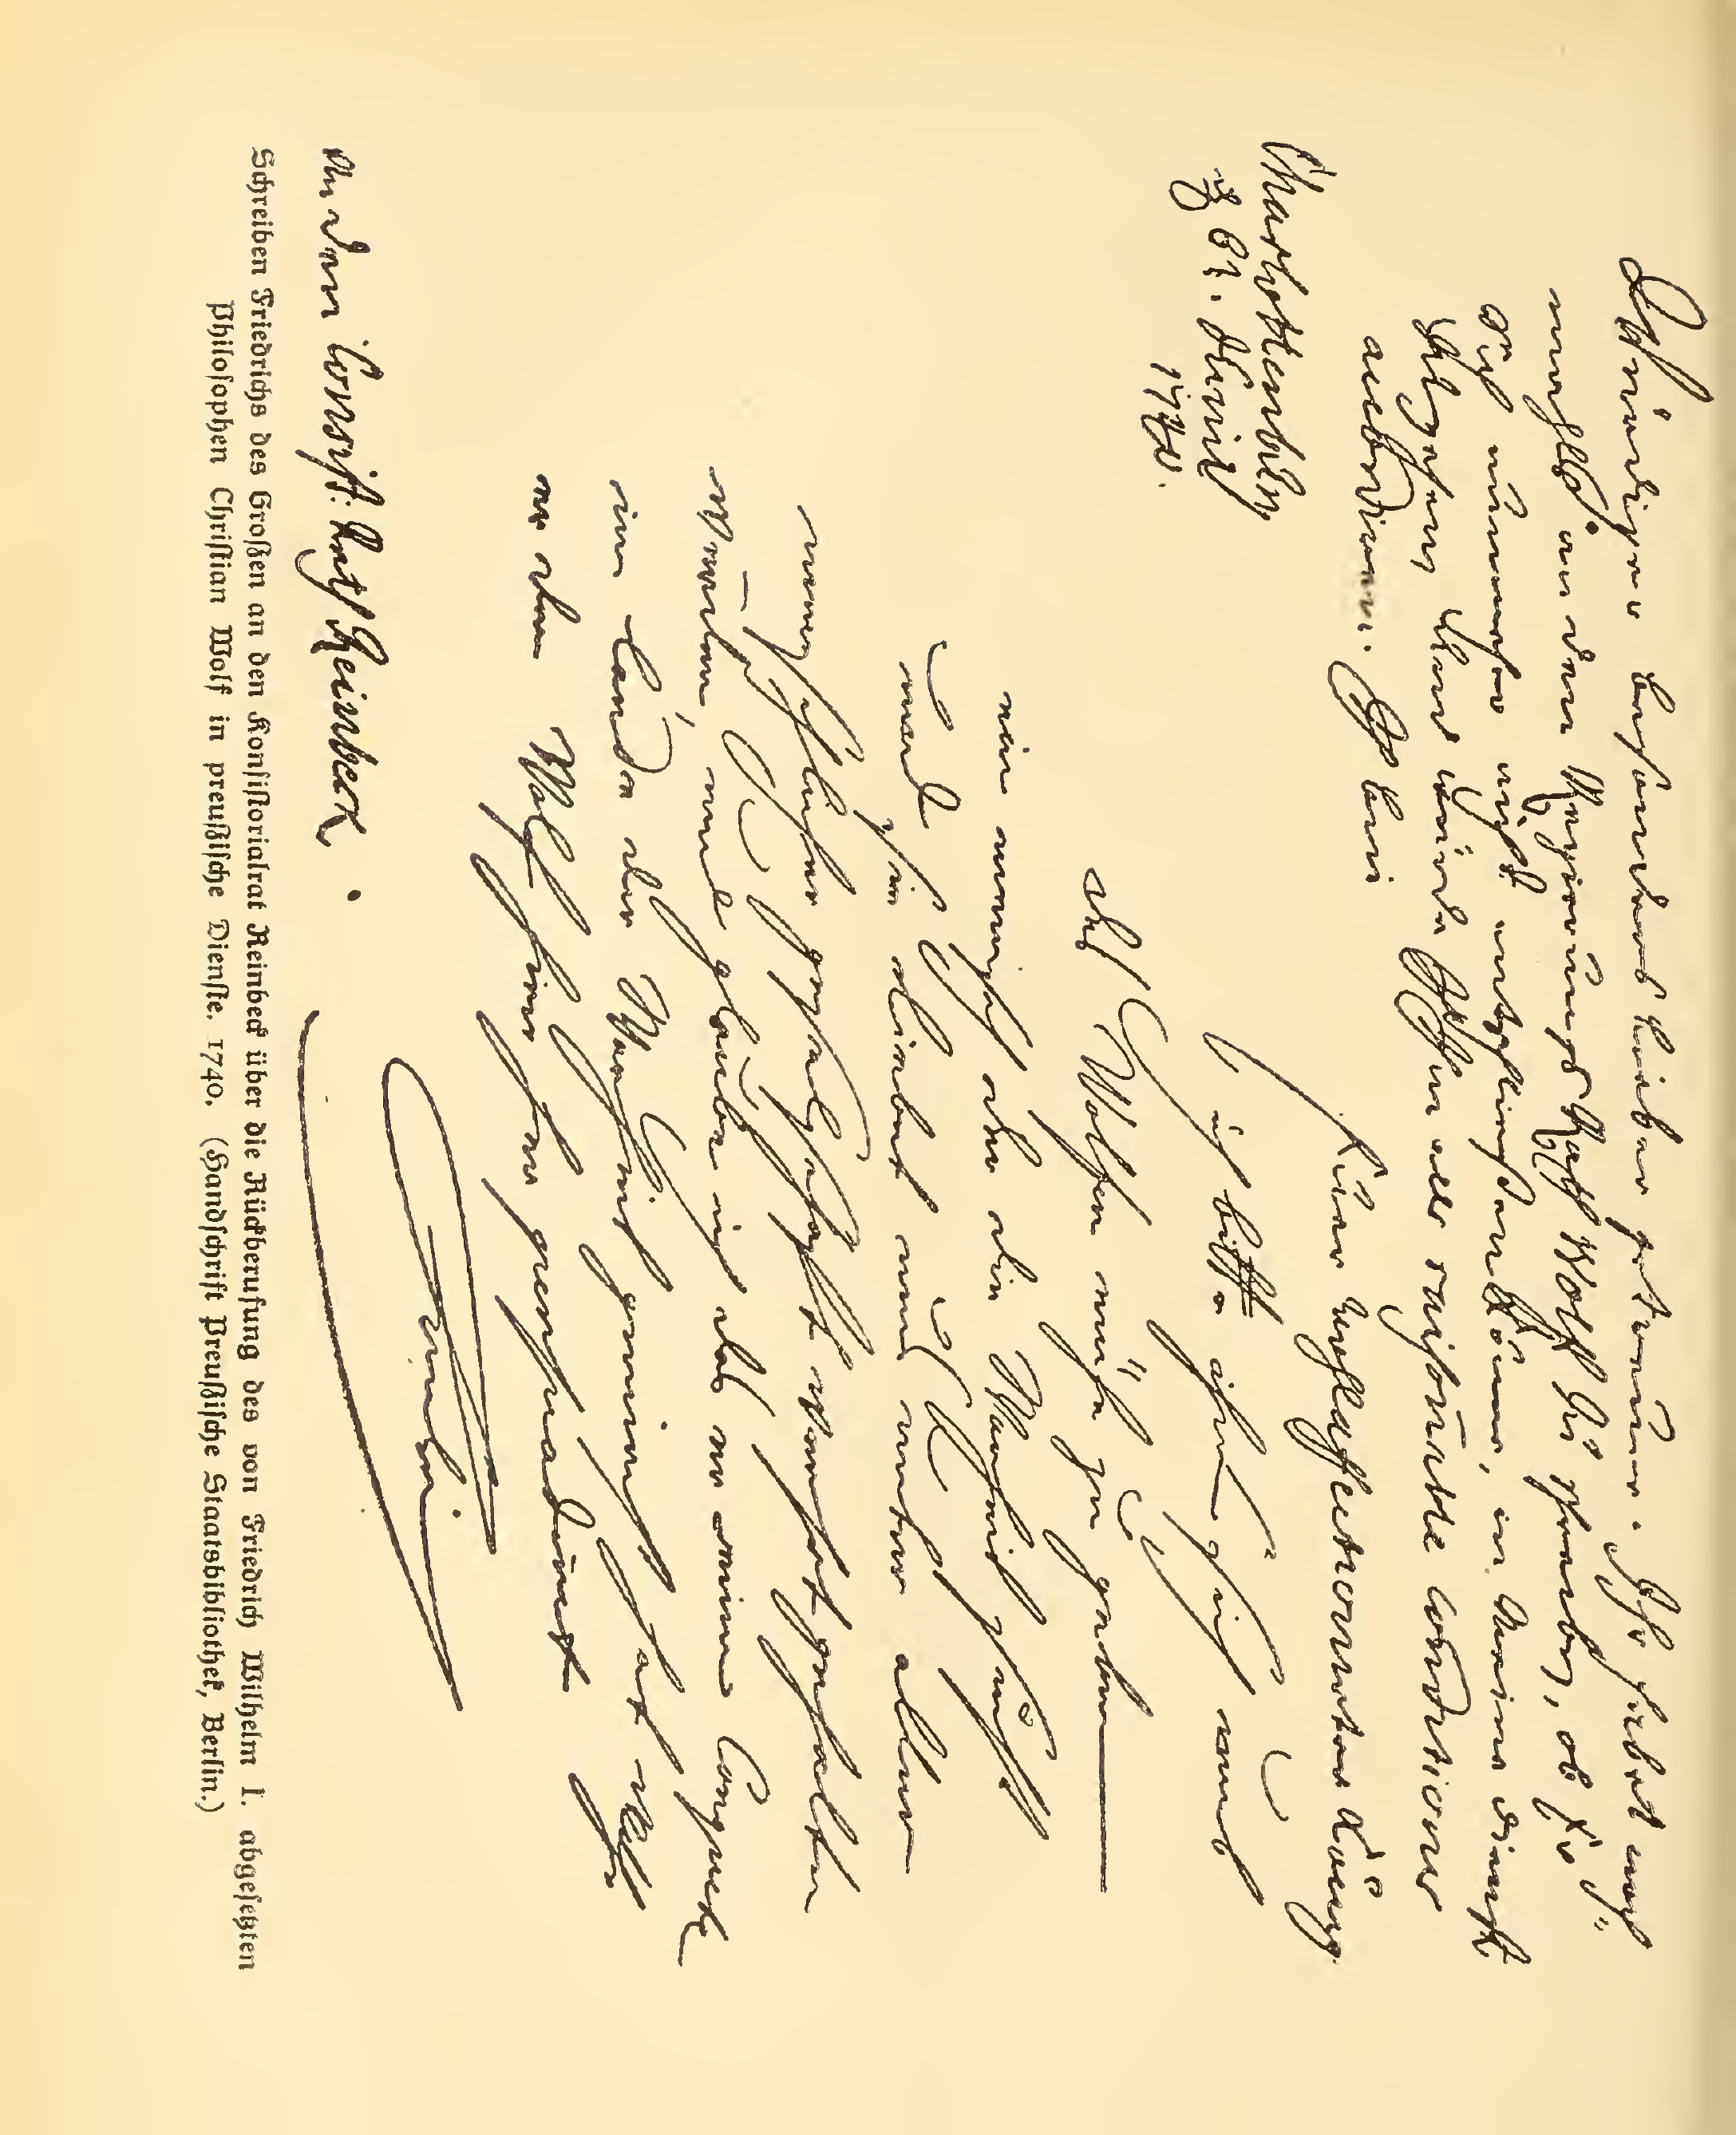 Ehrwürdiger besonders lieber getreuer. Ihr sollet noch
mahlß an den Regierungs Rath Wolff hir schreiben, ob Er
sich nunmehr nicht entschließen könne, in Meine Dienste
zu gehen und würde Ich Ihm alle raisonable conditiones
accordiren. Ich bin
Euer wohlaffectionirter König
Charlottenburg
d. 6t. Junij
1740.
ich bitte ihn sich umb
des Wolfen mühe zu geben
ein mensch der die Warheit sucht
und sie liebet mus unter aller
menschlicher geselschaft werht gehalten
werden, und glaube ich das er eine Conquete
im lande der Warheit gemacht hat wohr
er den Wolf hier her persuadiret
Frideric
An den Consist: Rath Reinbeck.
Schreiben Friedrichs des Großen an den Konsistorialrat Reinbeck über die Rückberufung des von Friedrich Wilhelm I. abgesetzten
Philosophen Christian Wolf in preußische Dienste. 1740. (Handschrift Preußische Staatsbibliothek, Berlin.)